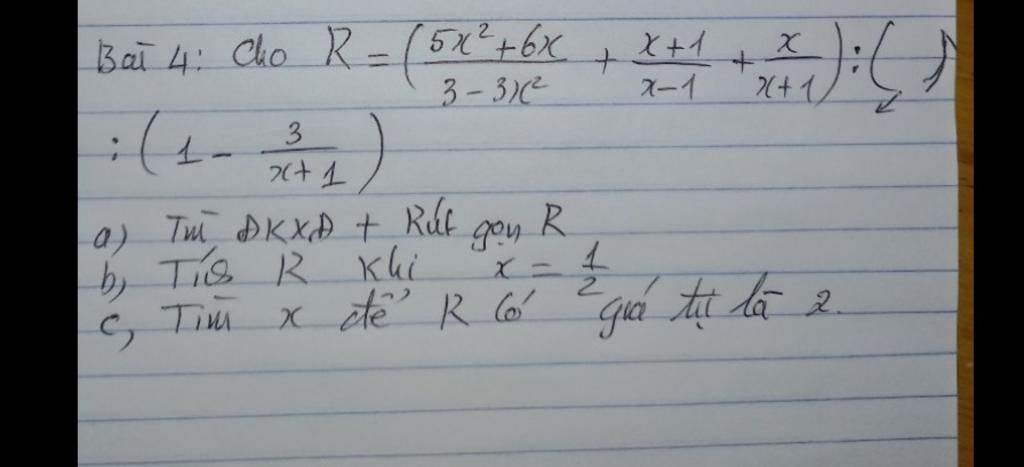 Bài 4: Cho R = (5x²+6x / 3-3x² + x+1 / x-1 + x / x+1) : ( )
: (1 - 3 / x+1)
a) Tìm ĐKXĐ + Rút gọn R
b, Tính R khi x = 1/2
c, Tìm x để R có giá trị là 2.